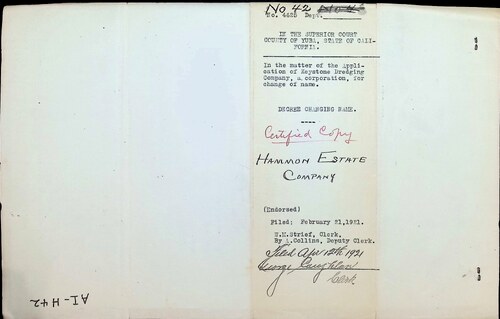 No 42
No. 4425 Dept.
IN THE SUPERIOR COURT
COUNTY OF YUBA, STATE OF CALI-
FORNIA.
In the matter of the Appli-
cation of Keystone Dredging
Company, a corporation, for
change of name.
DECREE CHANGING NAME.
Certified Copy
HAMMON ESTATE
COMPANY
(Endorsed)
Filed: February 21, 1921.
W.M.Strief, Clerk,
By A.Collins, Deputy Clerk.
Filed Apr 12th 1921
George Coughlan
Clerk
AI-H42